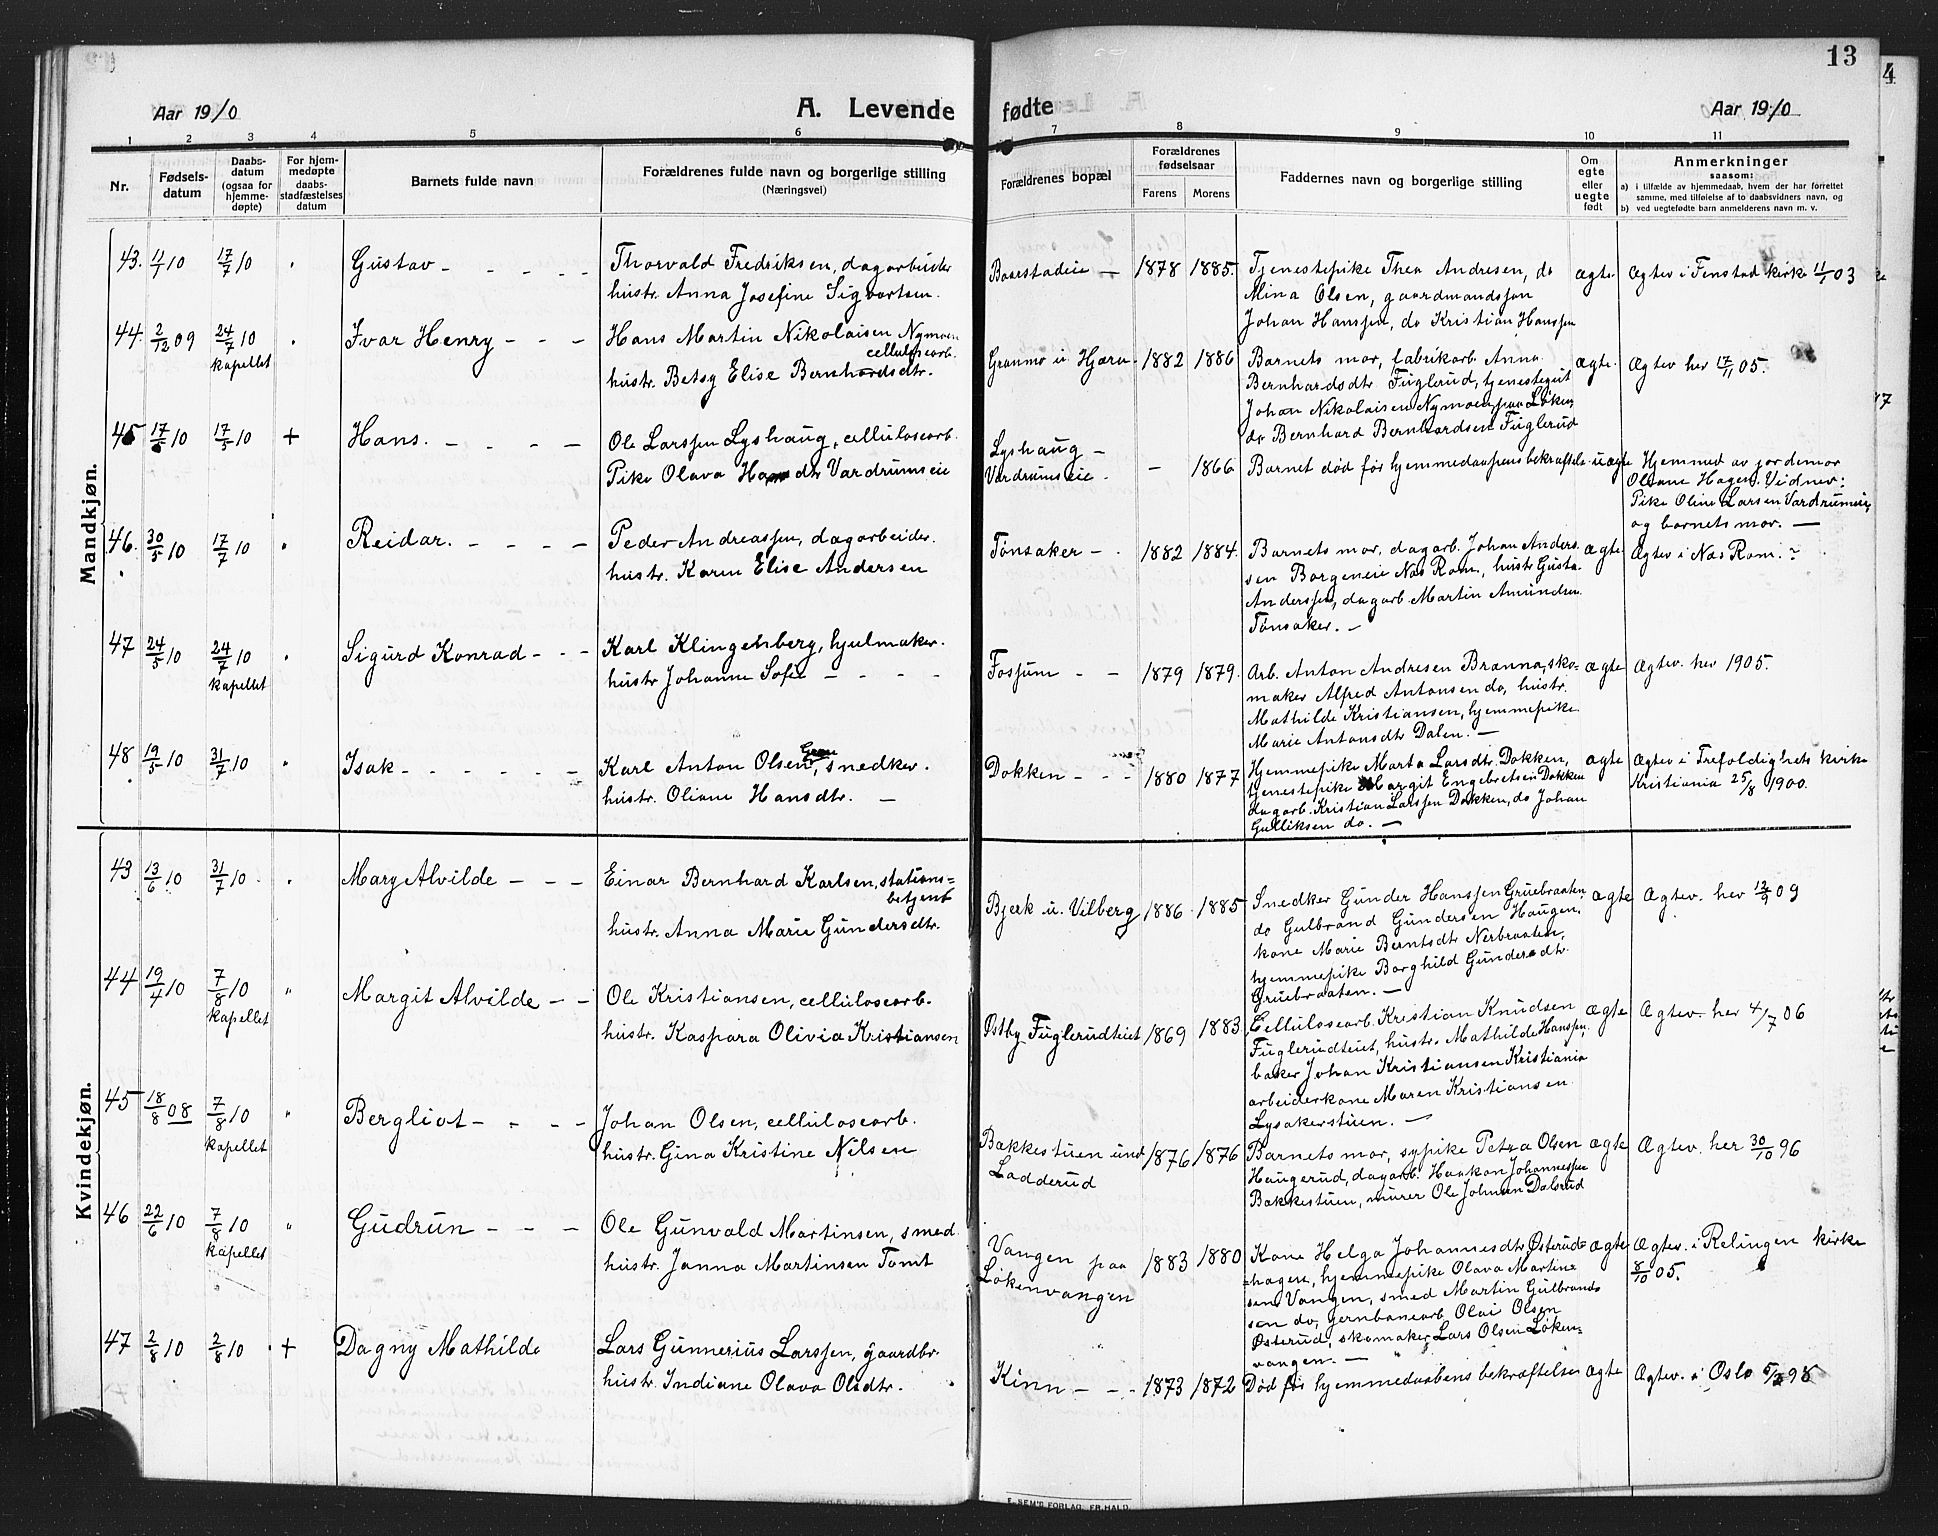 13
4
Aar 1910
A. Levende fødte
Aar 1910
1 2 3 4 5 6 7 8 9 10 11
Nr.
Fødsels-
datum
Daabs-
datum
(ogsaa for
hjemme-
døpte)
For hjem-
medøpte
daabs-
stadfæstelses
datum
Barnets fulde navn
Forældrenes fulde navn og borgerlige stilling
(Næringsvei)
Forældrenes bopæl
Forældrenes
fødselsaar
Farens Morens
Faddernes navn og borgerlige stilling
Om
egte
eller
uegte
født
Anmerkninger
saasom:
a) i tilfælde av hjemmedaab, hvem der har forrettet
samme, med tilføielse af to daabsvidners navn, og
b) ved uegtefødte barn anmelderens navn m. v.
Mandkjøn.
43. 17/7 10 Gustav - - - -
Thorvald Fredriksen, dagarbeider
hustr. Anna Josefine Sigvartsen.
1878 1885.
Tjenestepike Thea Andresen, do
Mina Olsen, gaardmandssøn
Johan Hanssen, do Kristian Hanssen
ægte. Ægtev i Fenstad kirke 11/1 03
44. 2/12 09 24/7 10 kapellet Ivar Henry - - -
Hans Martin Nikolaisen Nymoen
cellulosearb.
hustr. Betsy Elise Bernhardsdtr.
Granmo u Hæra. 1882 1886
Barnets mor, fabrikarb Anna
Bernhardsdtr Fuglerud, tjenestegut
Johan Nikolaisen Nymoen paa Løken,
do Bernhard Bernhardsen Fuglerud
ægte. Ægtev her 17/11 05.
45 17/5 10 17/5 10 + Hans. - - - -
Ole Larssen Lyshaug, cellulosearb.
Pike Olava Hansdtr Vardrumseie
Lyshaug -
Vardrumseie.
- 1866
Barnet død før hjemmedaapens bekræftelse
uægte
Hjemmed av jordemor
Oliane Hagen. Vidner:
Pike Oline Larsen Vardrumseie
og barnets mor. -
46. 30/5 10 17/7 10 Reidar. - - - -
Peder Andreassen, dagarbeider.
hustr. Karen Elise Andersen
Tønsaker - 1882 1884.
Barnets mor, dagarb. Johan Anders
sen Borgeneie Næs Rom., hustr Gusta
Anderssen, dagarb. Martin Amundsen
Tønsaker. -
ægte Ægtev i Næs Rom. ~
47 24/5 10 24/7 10 kapellet Sigurd Konrad - - -
Karl Klingenberg, hjulmaker.
hustr Johanne Sofie - - - -
Fossum - - 1879 1879.
Arb. Anton Andresen Brænna, sko-
maker Alfred Antonsen do, hustr.
Mathilde Kristiansen, hjemmepike
Marie Antonsdtr Dalen. -
ægte Ægtev. her 1905.
48 19/5 10 31/7 10 Isak - - - - -
Karl Anton Olsen, snedker.
hustr. Oliane Hansdtr. -
Dokken - - - 1880 1877
Hjemmepike Marta Larsdtr. Dokken,
tjenestepike Margit Engebretsen Dokken
dagarb. Kristian Larssen Dokken, do Johan
Gulliksen do. -
ægte
Ægtev i Trefoldighets kirke
Kristiania 25/8 1900.
Kvindekjøn.
43 13/6 10 31/7 10 Mary Alvilde - - -
Einar Bernhard Karlsen, stations=
betjent
hustr. Anna Marie Gundersdtr.
Bjerk u. Vilberg 1886 1885
Snedker Gunder Hanssen Gruebraaten
do Gulbrand Gundersen Haugen,
kone Marie Berntsdtr Nerbraaten,
hjemmepike Borghild Gundersdtr
Gruebraaten. -
ægte Ægtev. her 12/9 09
44 19/4 10 7/8 10 kapellet Margit Alvilde - -
Ole Kristiansen, cellulosearb.
hustr. Kaspara Olivia Kristiansen
Østby Fuglerudteiet 1869 1883
Cellulosearb. Kristian Knudsen
Fuglerudteiet, hustr. Mathilde Hanssen,
baker Johan Kristiansen Kristiania
arbeiderkone Maren Kristiansen
Lysakerstuen. -
ægte Ægtev. her 4/7 06
45 18/8 08 7/8 10 kapellet Bergliot - - - -
Johan Olsen, cellulosearb.
hustr. Gina Kristine Nilsen
Bakkestuen und
Ladderud
1876 1876
Barnets mor, sypike Petra Olsen
Haugerud, dagarb. Haakon Johannessen
Bakkestuen, murer Ole Johnsen Dalsrud
ægte Ægtev. her 30/10 96
46 22/6 10 7/8 10 kapellet Gudrun - - -
Ole Gunvald Martinsen, smed
hustr. Janna Martinsen Tomt
Vangen paa
Løkenvangen
1883 1880
Kone Helga Johannesdtr Østerud=
hagen, hjemmepike Olava Martin=
sen Vangen, smed Martin Gulbrand
sen do, jernbanearb Olai Olsen
Østerud, skomaker Lars Olsen Løken=
vangen. -
ægte
Ægtev. i Relingen kirke
8/10 05.
47 2/8 10 2/8 10 + Dagny Mathilde
Lars Gunnerius Larssen, gaardbr.
hustr. Indiane Olava Olsdtr.
Kinn - - - 1873 1872
Død før hjemmedaabens bekræftelse ægte Ægtev. i Oslo
F. SEM'S FORLAG, FR.HALD.